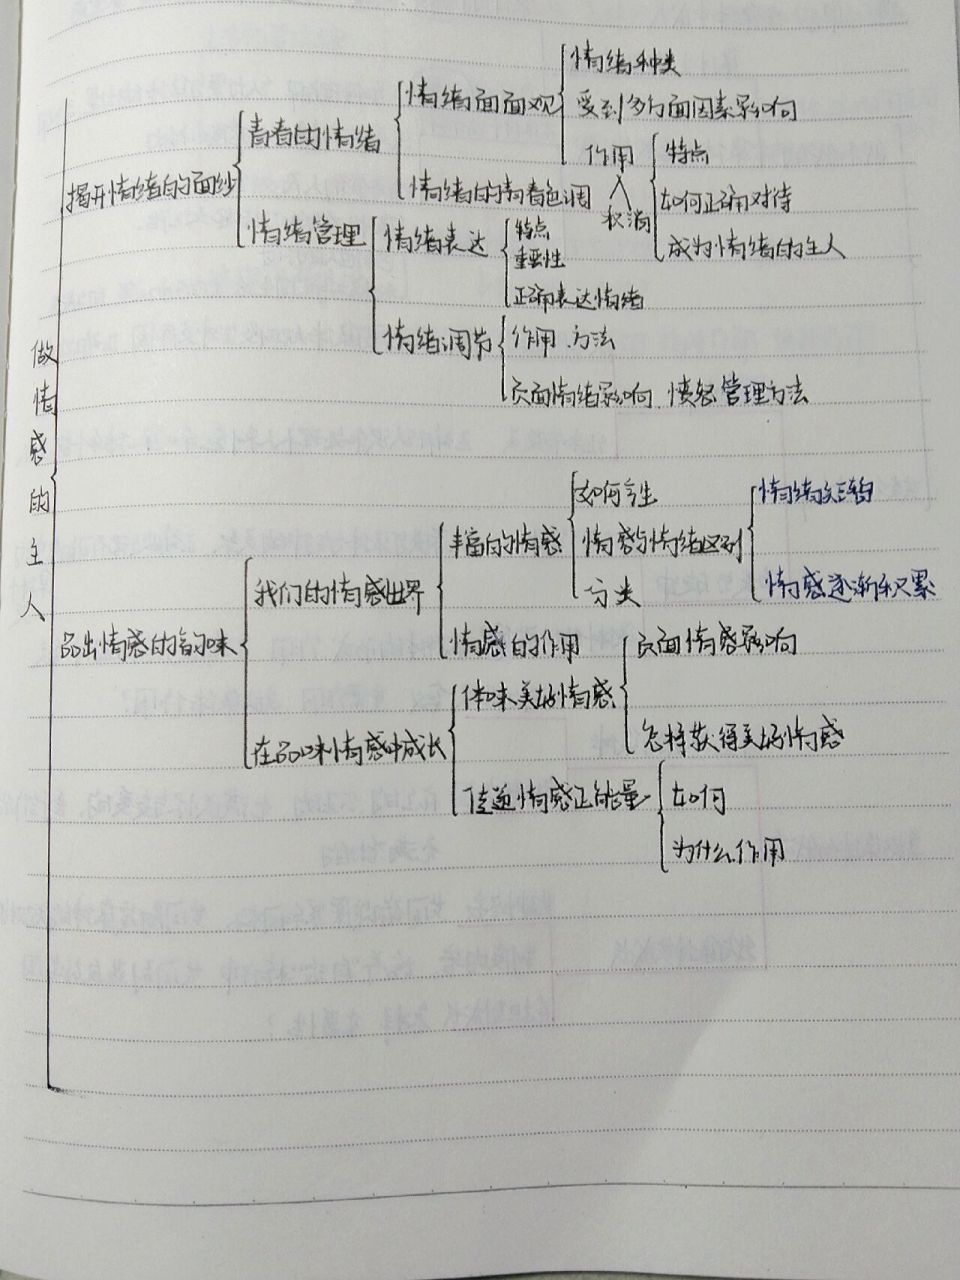 做情感的主人
揭开情绪的面纱
青春的情绪
情绪面面观
情绪种类
受到多方面因素影响
作用
情绪的青春色调
特点
如何正确对待
成为情绪的主人
情绪管理
情绪表达
特点
重要性
正确表达情绪
情绪调节
作用、方法
负面情绪影响、愤怒管理方法
品出情感的韵味
我们的情感世界
丰富的情感
如何产生
情感与情绪区别
情绪短暂
情感逐渐积累
分类
情感的作用
在品味情感中成长
体味美好情感
负面情感影响
怎样获得美好情感
传递情感正能量
如何
为什么、作用